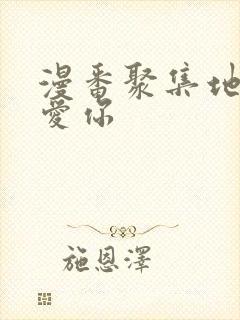 漫番聚集地
愛你
施恩澤